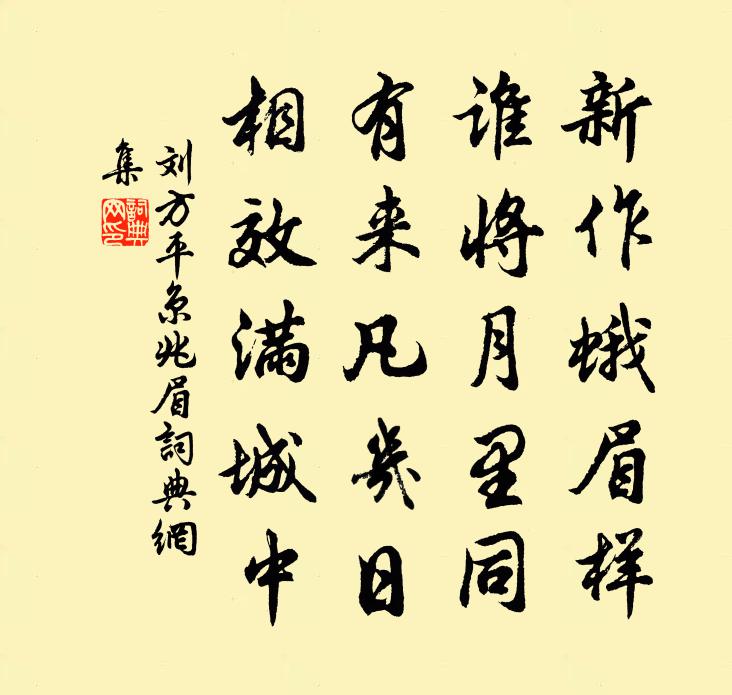 新作蛾眉样
谁将月里同
有来凡几日
相效满城中
刘方平京兆眉詞典網
集
詞典
网印